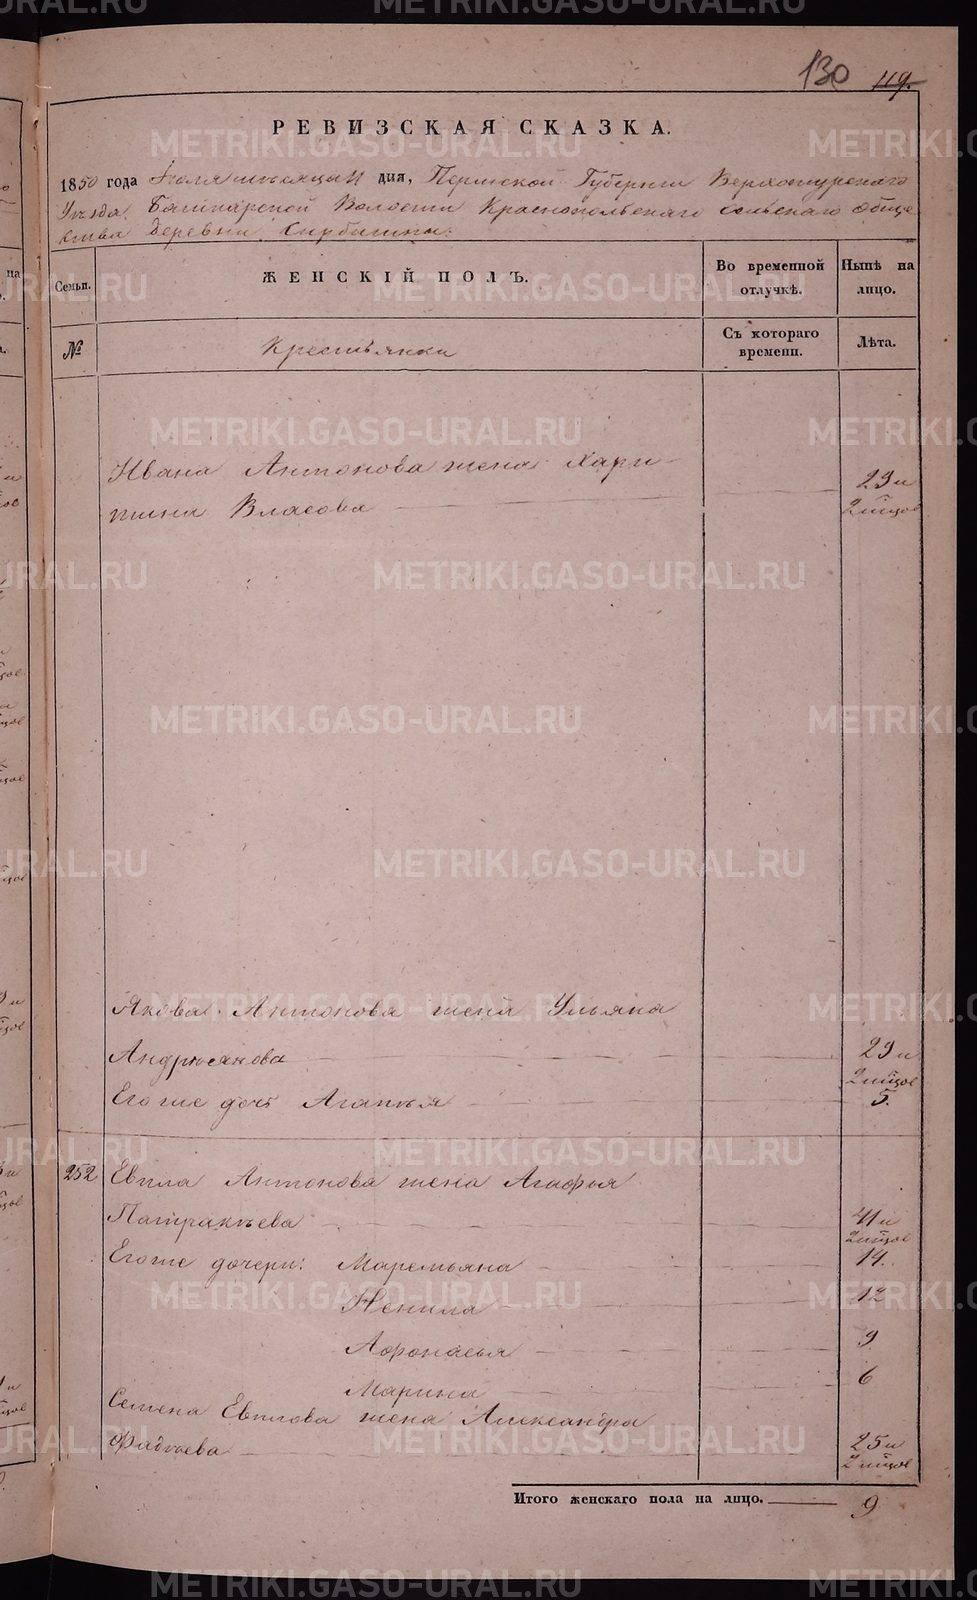 130 119.
РЕВИЗСКАЯ СКАЗКА.
1850 года Іюля мѣсяца 11 дня, Пермской Губерніи Верхотурскаго
Уѣзда, Башкарской Волости Краснопольскаго сельскаго обще
ства деревни
Семьи.
ЖЕНСКІЙ ПОЛЪ.
Во временной отлучкѣ.
Нынѣ на лицо.
№
Крестьянки
Съ котораго времени.
Лѣта.
Ивана Антонова жена Хари
тина Власова 29 и
Якова Антонова жена Ульяна
Андреянова 29 и
Его же дочь Агапья 5.
252 Евпла Антонова жена Агафья
Патракѣева 41 и
Его же дочери: Маремьяна 14.
Ненила 12
Афонасья 9
Марина 6
Семена Евплова жена Александра
Фадѣева 25 и
Итого женскаго пола на лицо. 9
METRIKI.GASO-URAL.RU